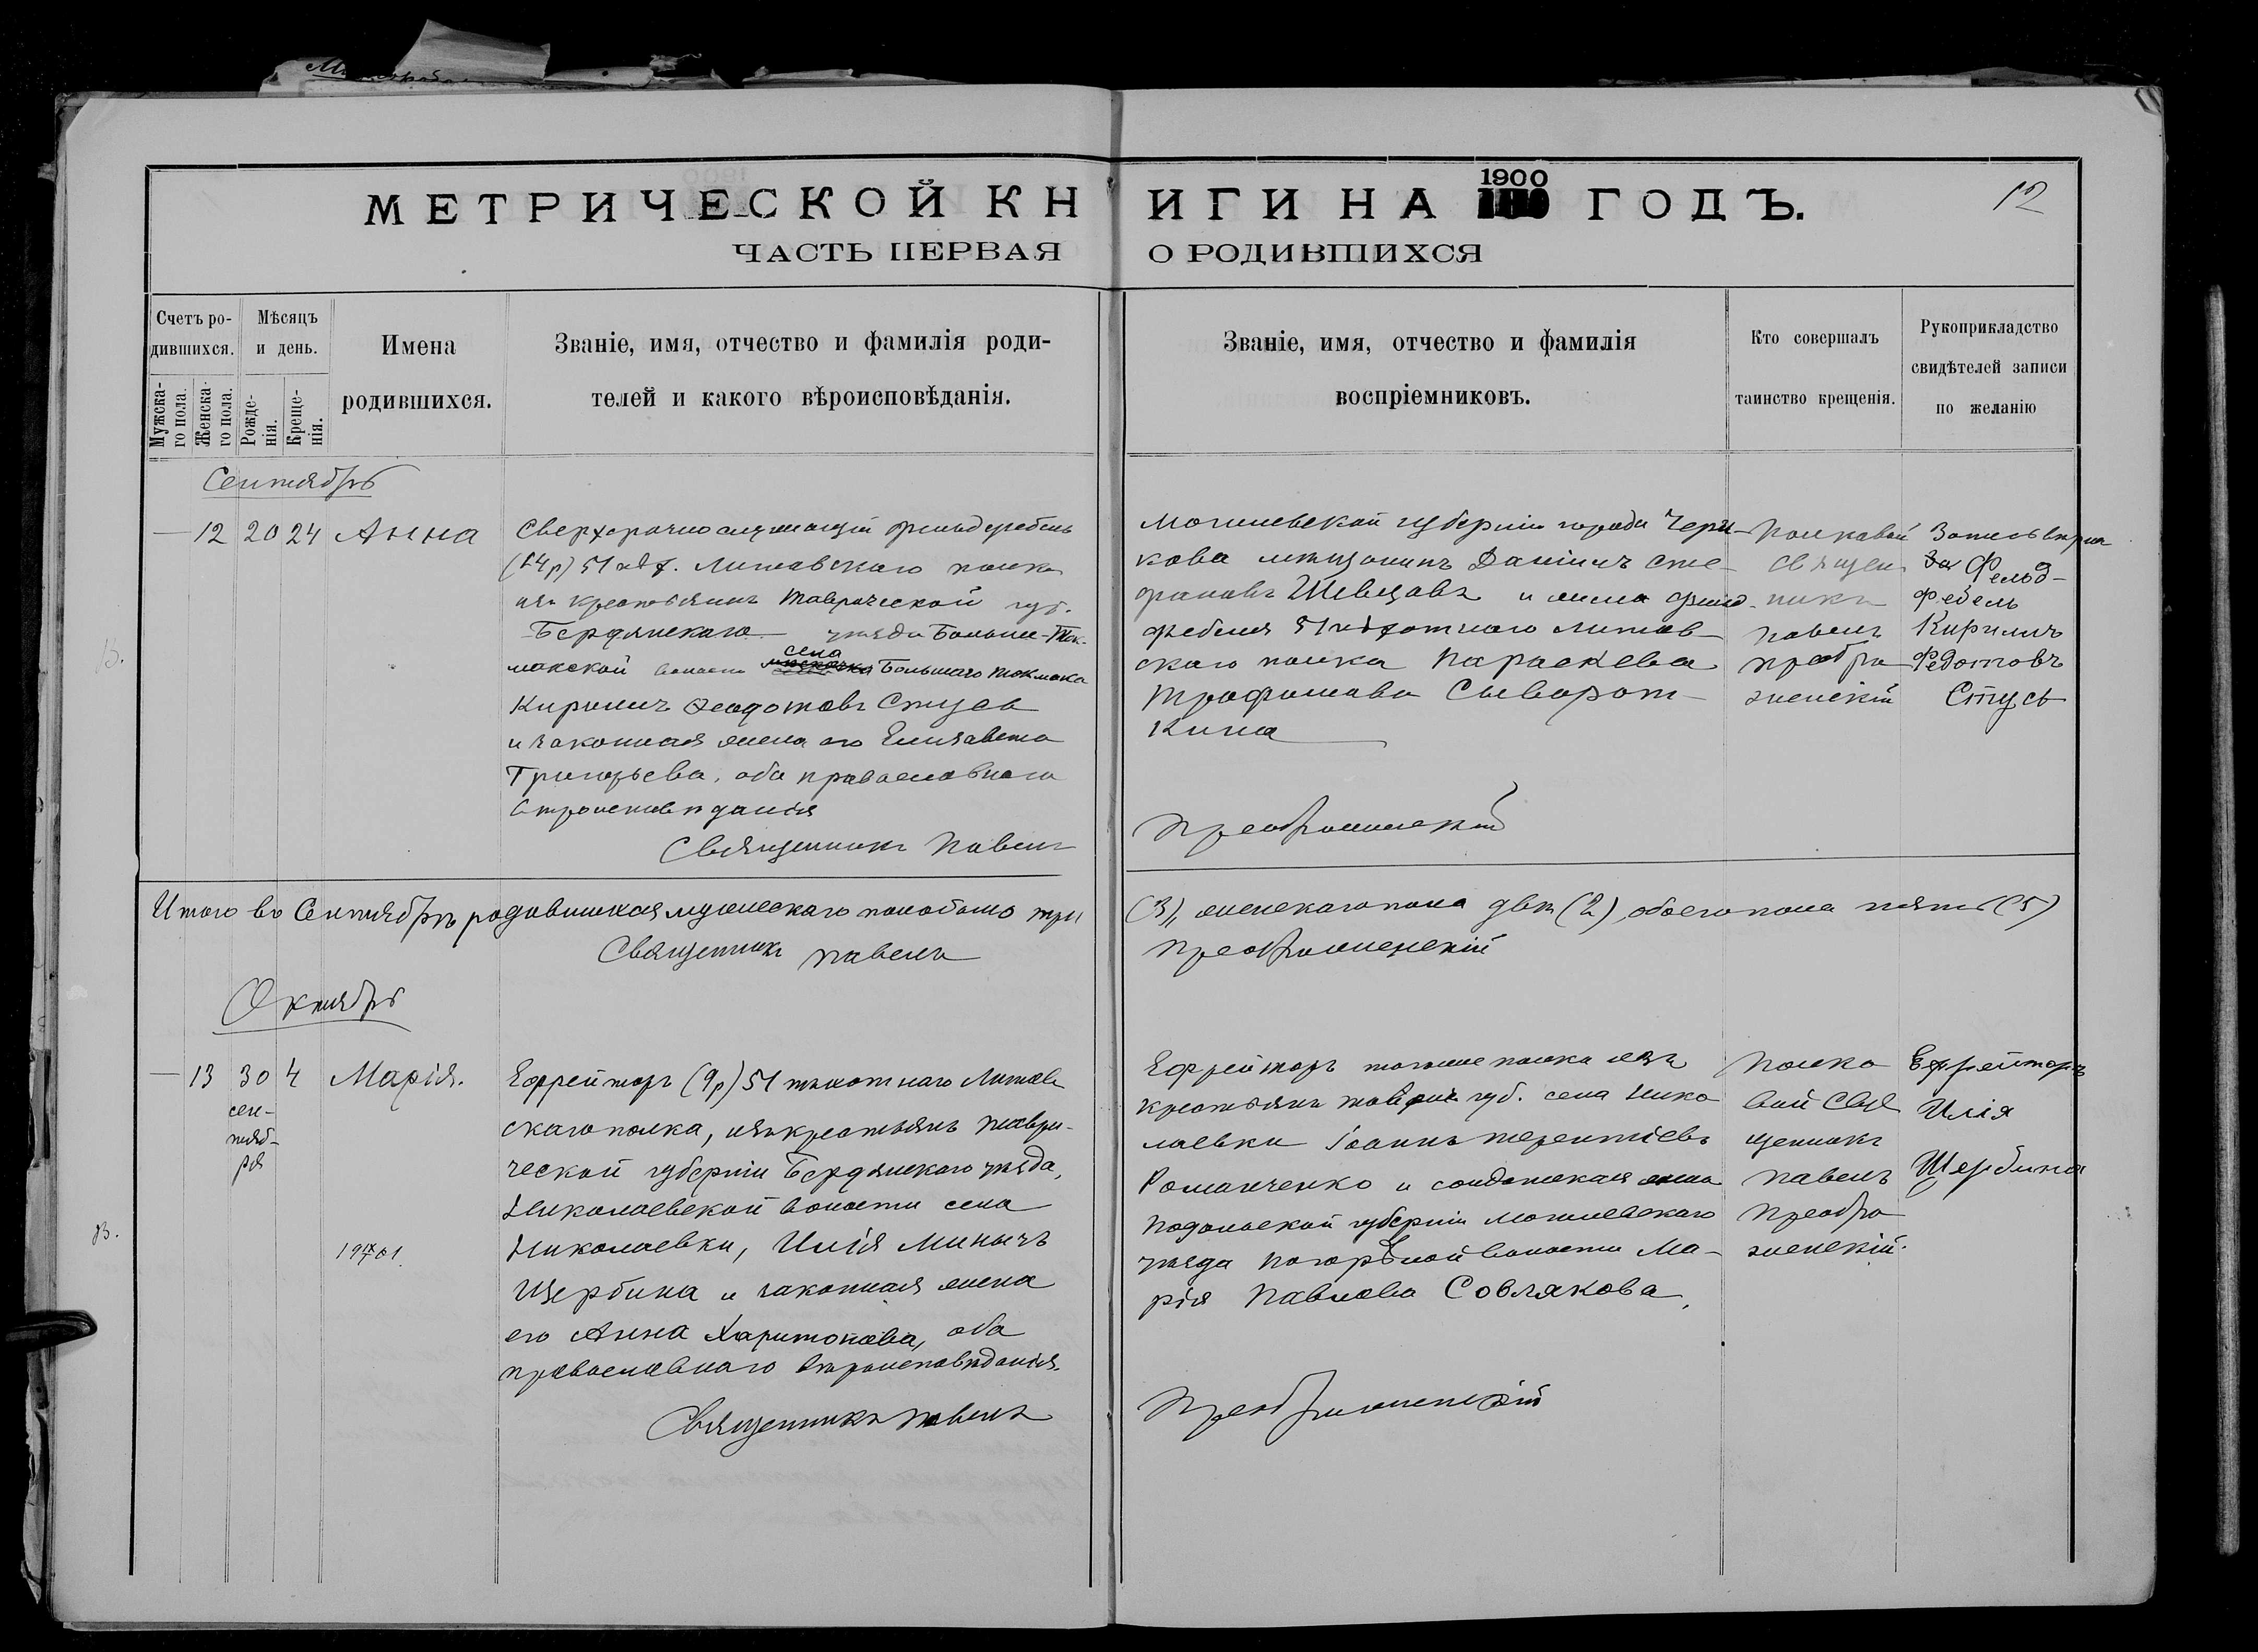 МЕТРИЧЕСКОЙ КНИГИ НА 1900 ГОДЪ.
ЧАСТЬ ПЕРВАЯ О РОДИВШИХСЯ
12
Счетъ ро-
дившихся.
Мужска-
го пола.
Женска-
го пола.
Мѣсяцъ
и день.
Рожде-
нія.
Креще-
нія.
Имена
родившихся.
Званіе, имя, отчество и фамилія роди-
телей и какого вѣроисповѣданія.
Званіе, имя, отчество и фамилія
воспріемниковъ.
Кто совершалъ
таинство крещенія.
Рукоприкладство
свидѣтелей записи
по желанію
Сентябрь
— 12 20 24 Анна
Сверхсрочно служащій фельдфебель
51 Литовскаго полка
изъ крестьянъ Таврической губ.
Бердянскаго уѣзда Больше-Ток-
макской волости села Большаго Токмака
Кириллъ Ѳеодотовъ Стусь
и законная жена его Елизавета
Григорьева, оба православнаго
вѣроисповѣданія
Священникъ Павелъ
Могилевской губерніи города Чери-
кова мѣщанинъ Даніилъ Сте-
фановъ Шевцовъ и жена фельд-
фебеля 51 пѣхотнаго Литов-
скаго полка Параскева
Трофимова Сыворот-
кина
Преображенскій
Полковой
Священ
никъ
Павелъ
Преобра
женскій
Фельд-
фебель
Кириллъ
Федотовъ
Стусь
Итого въ Сентябрѣ родившихся мужескаго пола было три (3), женскаго пола двѣ (2), обоего пола пять (5)
Священникъ Павелъ Преображенскій
Октябрь
— 13 30 4 Марія.
сен-
тяб-
ря
В.
19 IX/7 01
Ефрейторъ (9р) 51 пѣхотнаго Литов
скаго полка, изъ крестьянъ Таври-
ческой губерніи Бердянскаго уѣзда,
Николаевской волости села
Николаевки, Илія Минычъ
Щербина и законная жена
его Анна Харитонова, оба
православнаго вѣроисповѣданія.
Священникъ Павелъ
Ефрейторъ того же полка изъ
крестьянъ Таврич губ. села Нико
лаевки Іоаннъ Терентіевъ
Романченко и солдатская жена
Подольской губерніи Могилевскаго
уѣзда волости Ма-
рія Павлова Совлякова,
Преображенскій
Полко
вой Свя
щенникъ
Павелъ
Преобра
женскій.
Ефрейторъ
Илія
Щербина